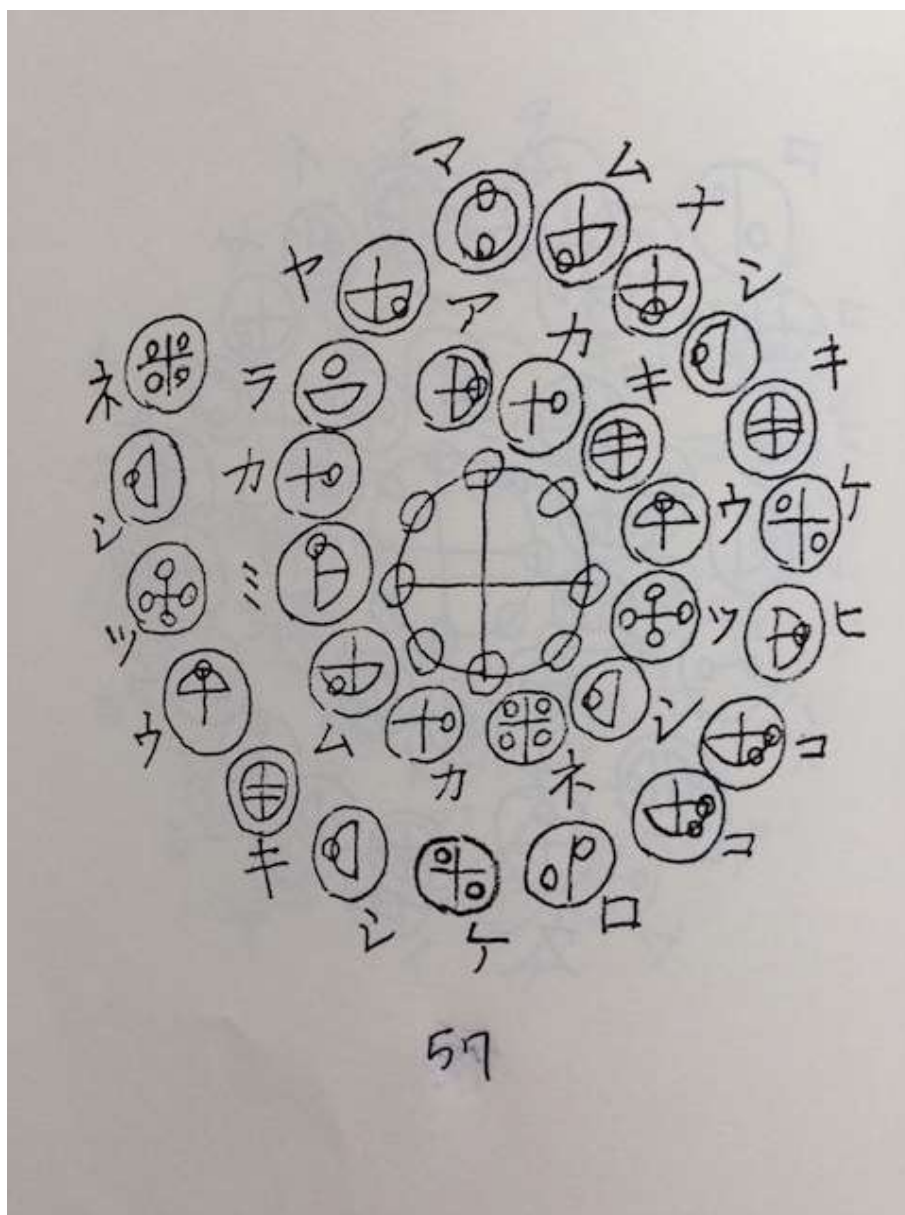 アカキウツシネカムミカラヤマムナシキケヒココロケシキウツシネ
57